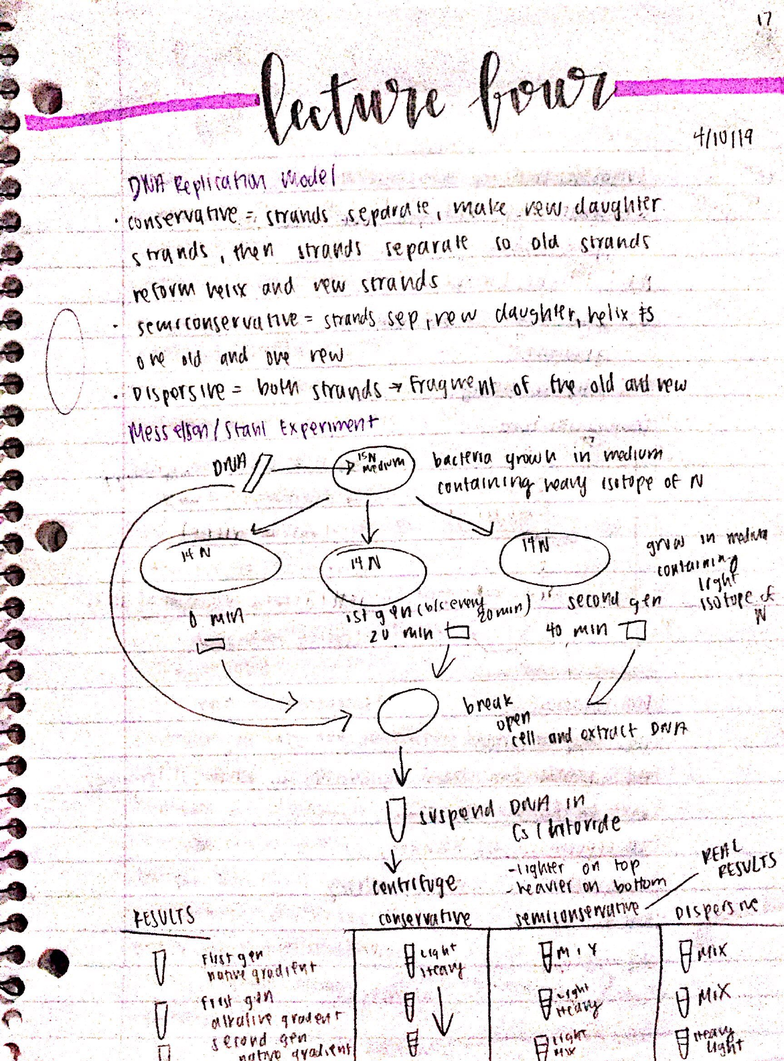 17
lecture four
4/10/19
DNA Replication Model
· conservative = strands separate, make new daughter
strands, then strands separate so old strands
reform helix and new strands
· semiconservative = strands sep, new daughter, helix is
one old and one new
· Dispersive = both strands → fragment of the old and new
Messelson/Stahl Experiment
DNA
15N
medium
bacteria grown in medium
containing heavy isotope of N
14 N
14 N
14 N
grow in media
containing
light
isotope of
N
0 min
1st gen (b/c every
20 min)
20 min
second gen
40 min
break
open
cell and extract DNA
suspend DNA in
Cs Chloride
centrifuge
-lighter on top
-heavier on bottom
REAL
RESULTS
RESULTS
conservative
semiconservative
Dispersive
First gen
native gradient
Light
Heavy
MIX
MIX
First gen
alkaline gradient
Light
Heavy
MIX
second gen
native gradient
Light
MIX
Heavy
Light